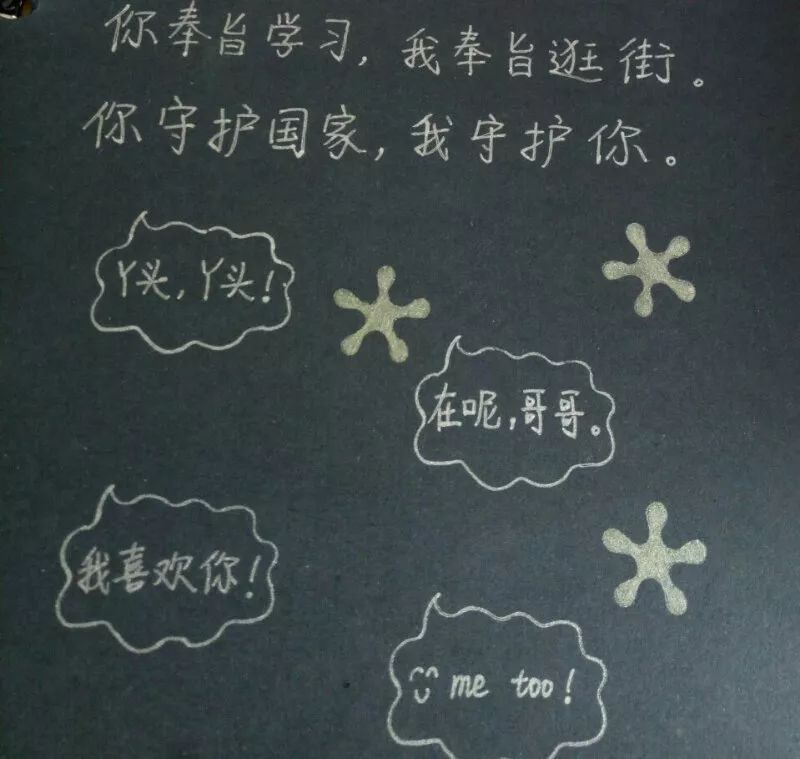 你奉旨学习,我奉旨逛街。
你守护国家,我守护你。
丫头,丫头!
在呢,哥哥。
我喜欢你!
me too!